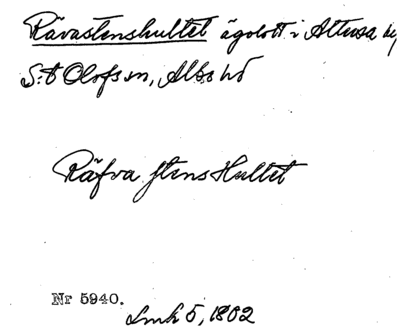 Rävastenshultet ägolott i Attusa by,
S:t Olofs sn, Albo hd
Räfva stens Hultet
Nr 5940.
Lmk 5, 1802